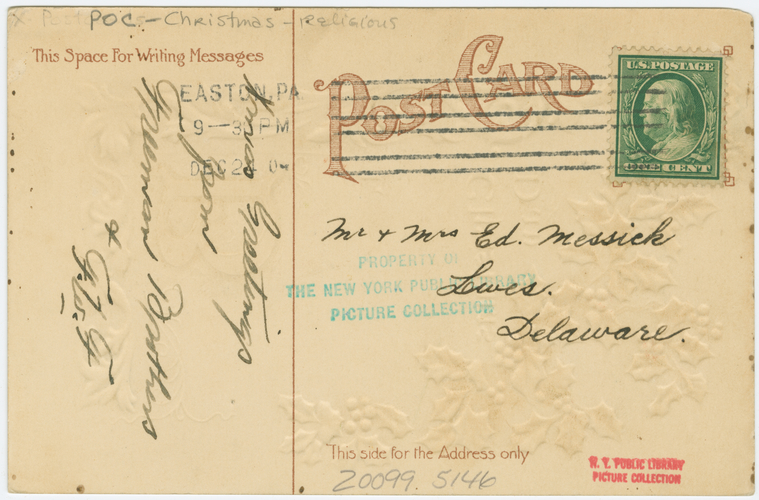 POC - Christmas - Religious
This Space For Writing Messages
POST CARD
U.S. POSTAGE
CENT
EASTON, PA.
9-3 PM
DEC 24 09
Xmas Greetings
from
Brothers
&
Mr & Mrs Ed. Messick
Lewes.
Delaware.
PROPERTY OF
THE NEW YORK PUBLIC LIBRARY
PICTURE COLLECTION
This side for the Address only
20099. 5146
N. Y. PUBLIC LIBRARY
PICTURE COLLECTION